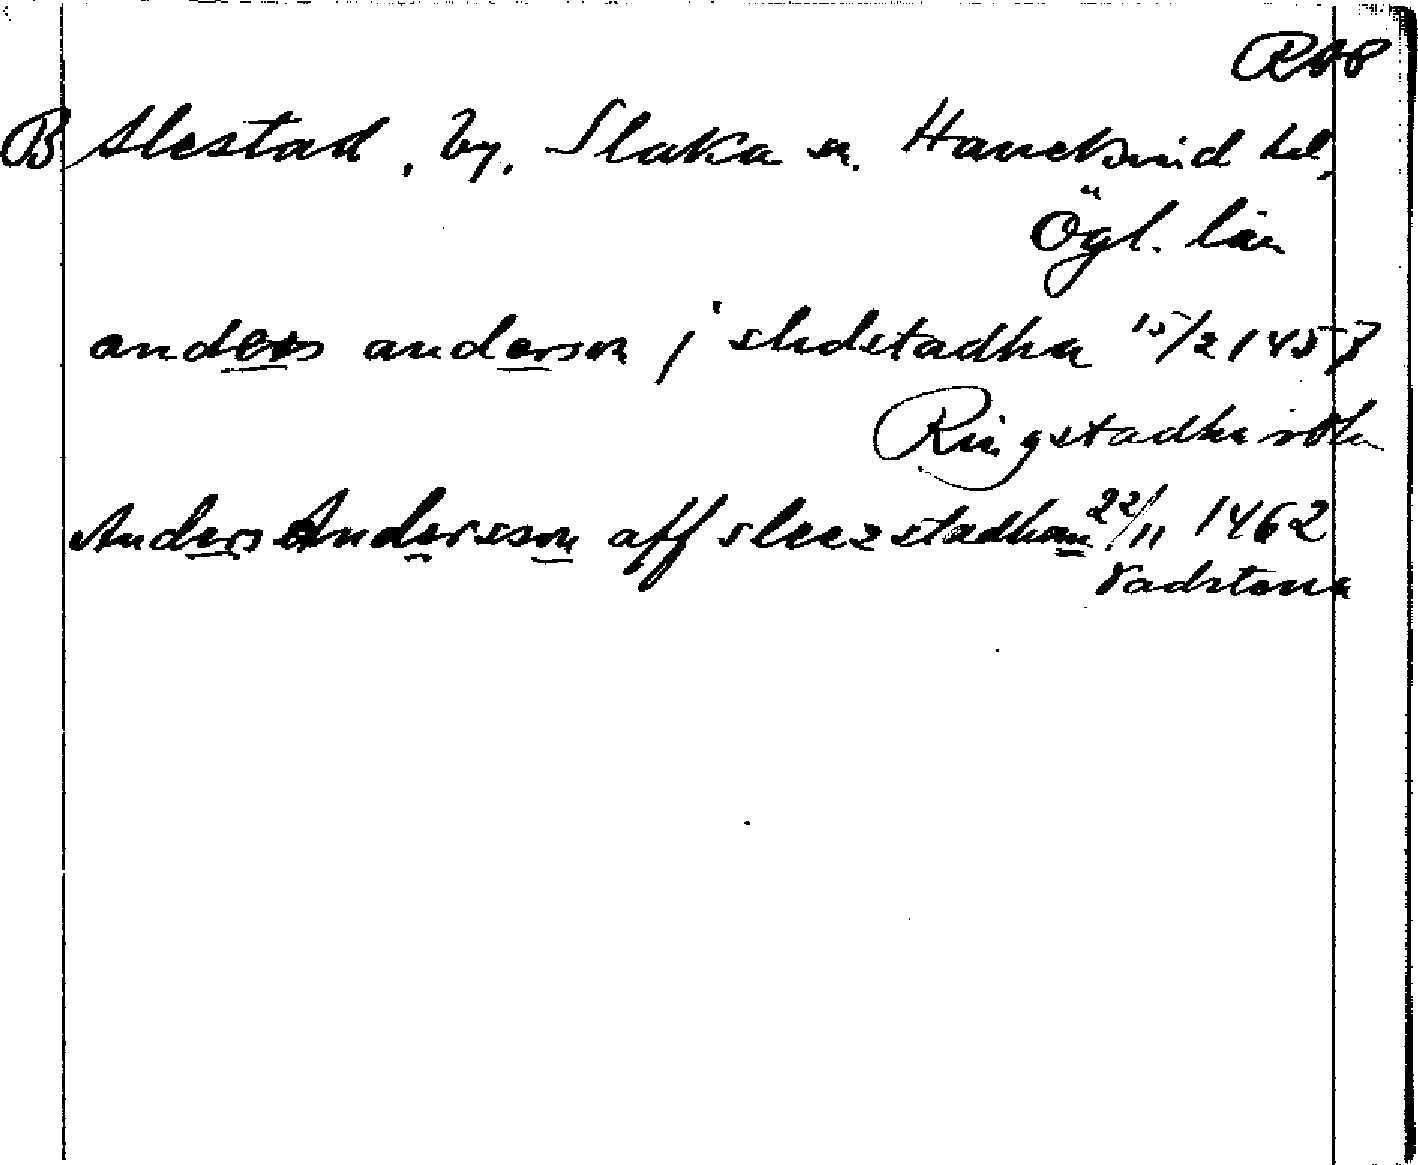 RAP
B Slestad, by, Slaka sn. Hanekind hd,
Ögl. län
anders anderson j sledstadha 15/2 1457
Ringstadha
Anders Andersson aff sleezstadhom 22/11 1462
Vadstena